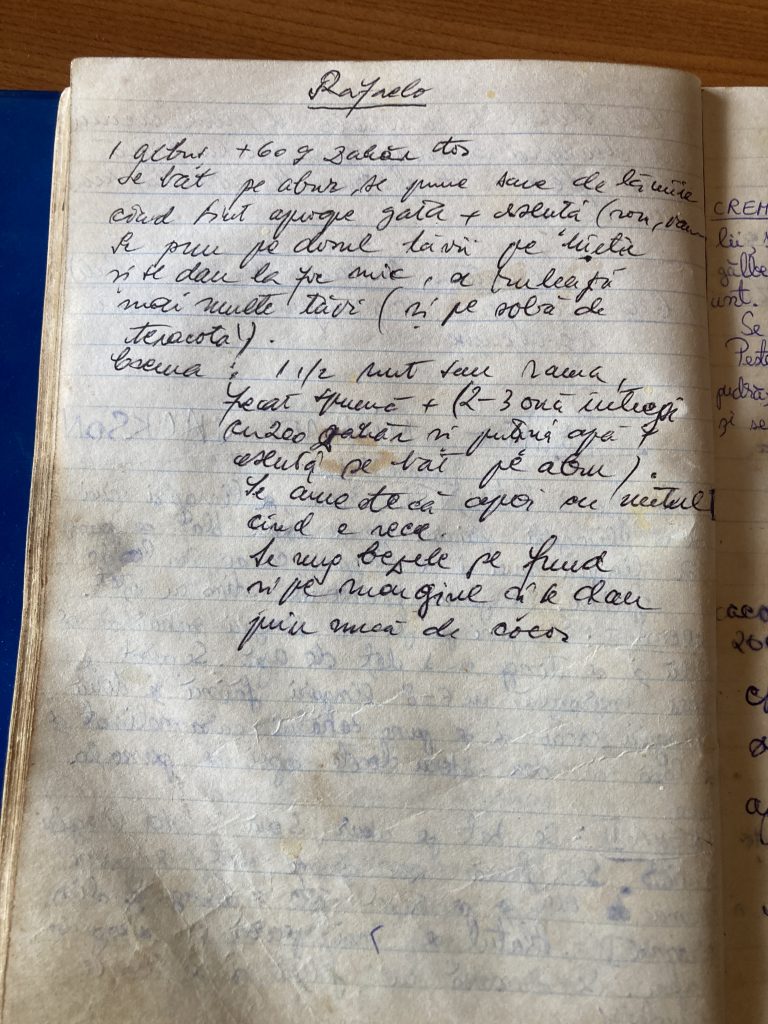 Rafaelo
1 + 60 g zahăr tos
Se bat pe abur, se pune sare de lămîie
cînd sînt aproape gata + esență (rom,
Se pun pe dosul tăvii pe
și se dau la foc mic, a
mai multe tăvi (și pe sobă de
teracotă!).
Crema : 1 1/2 unt sau rama,
frecat spumă + (2-3 ouă întregi
cu 200 g zahăr și puțină apă +
esență se bat pe abur).
Se amestecă apoi cu untul
cînd e rece.
Se ung bezele pe fund
și pe margine și se dau
prin nucă de cocos
CREM
lii,
gălbe
unt.
Se
Peste
pudră
și se
caca
200